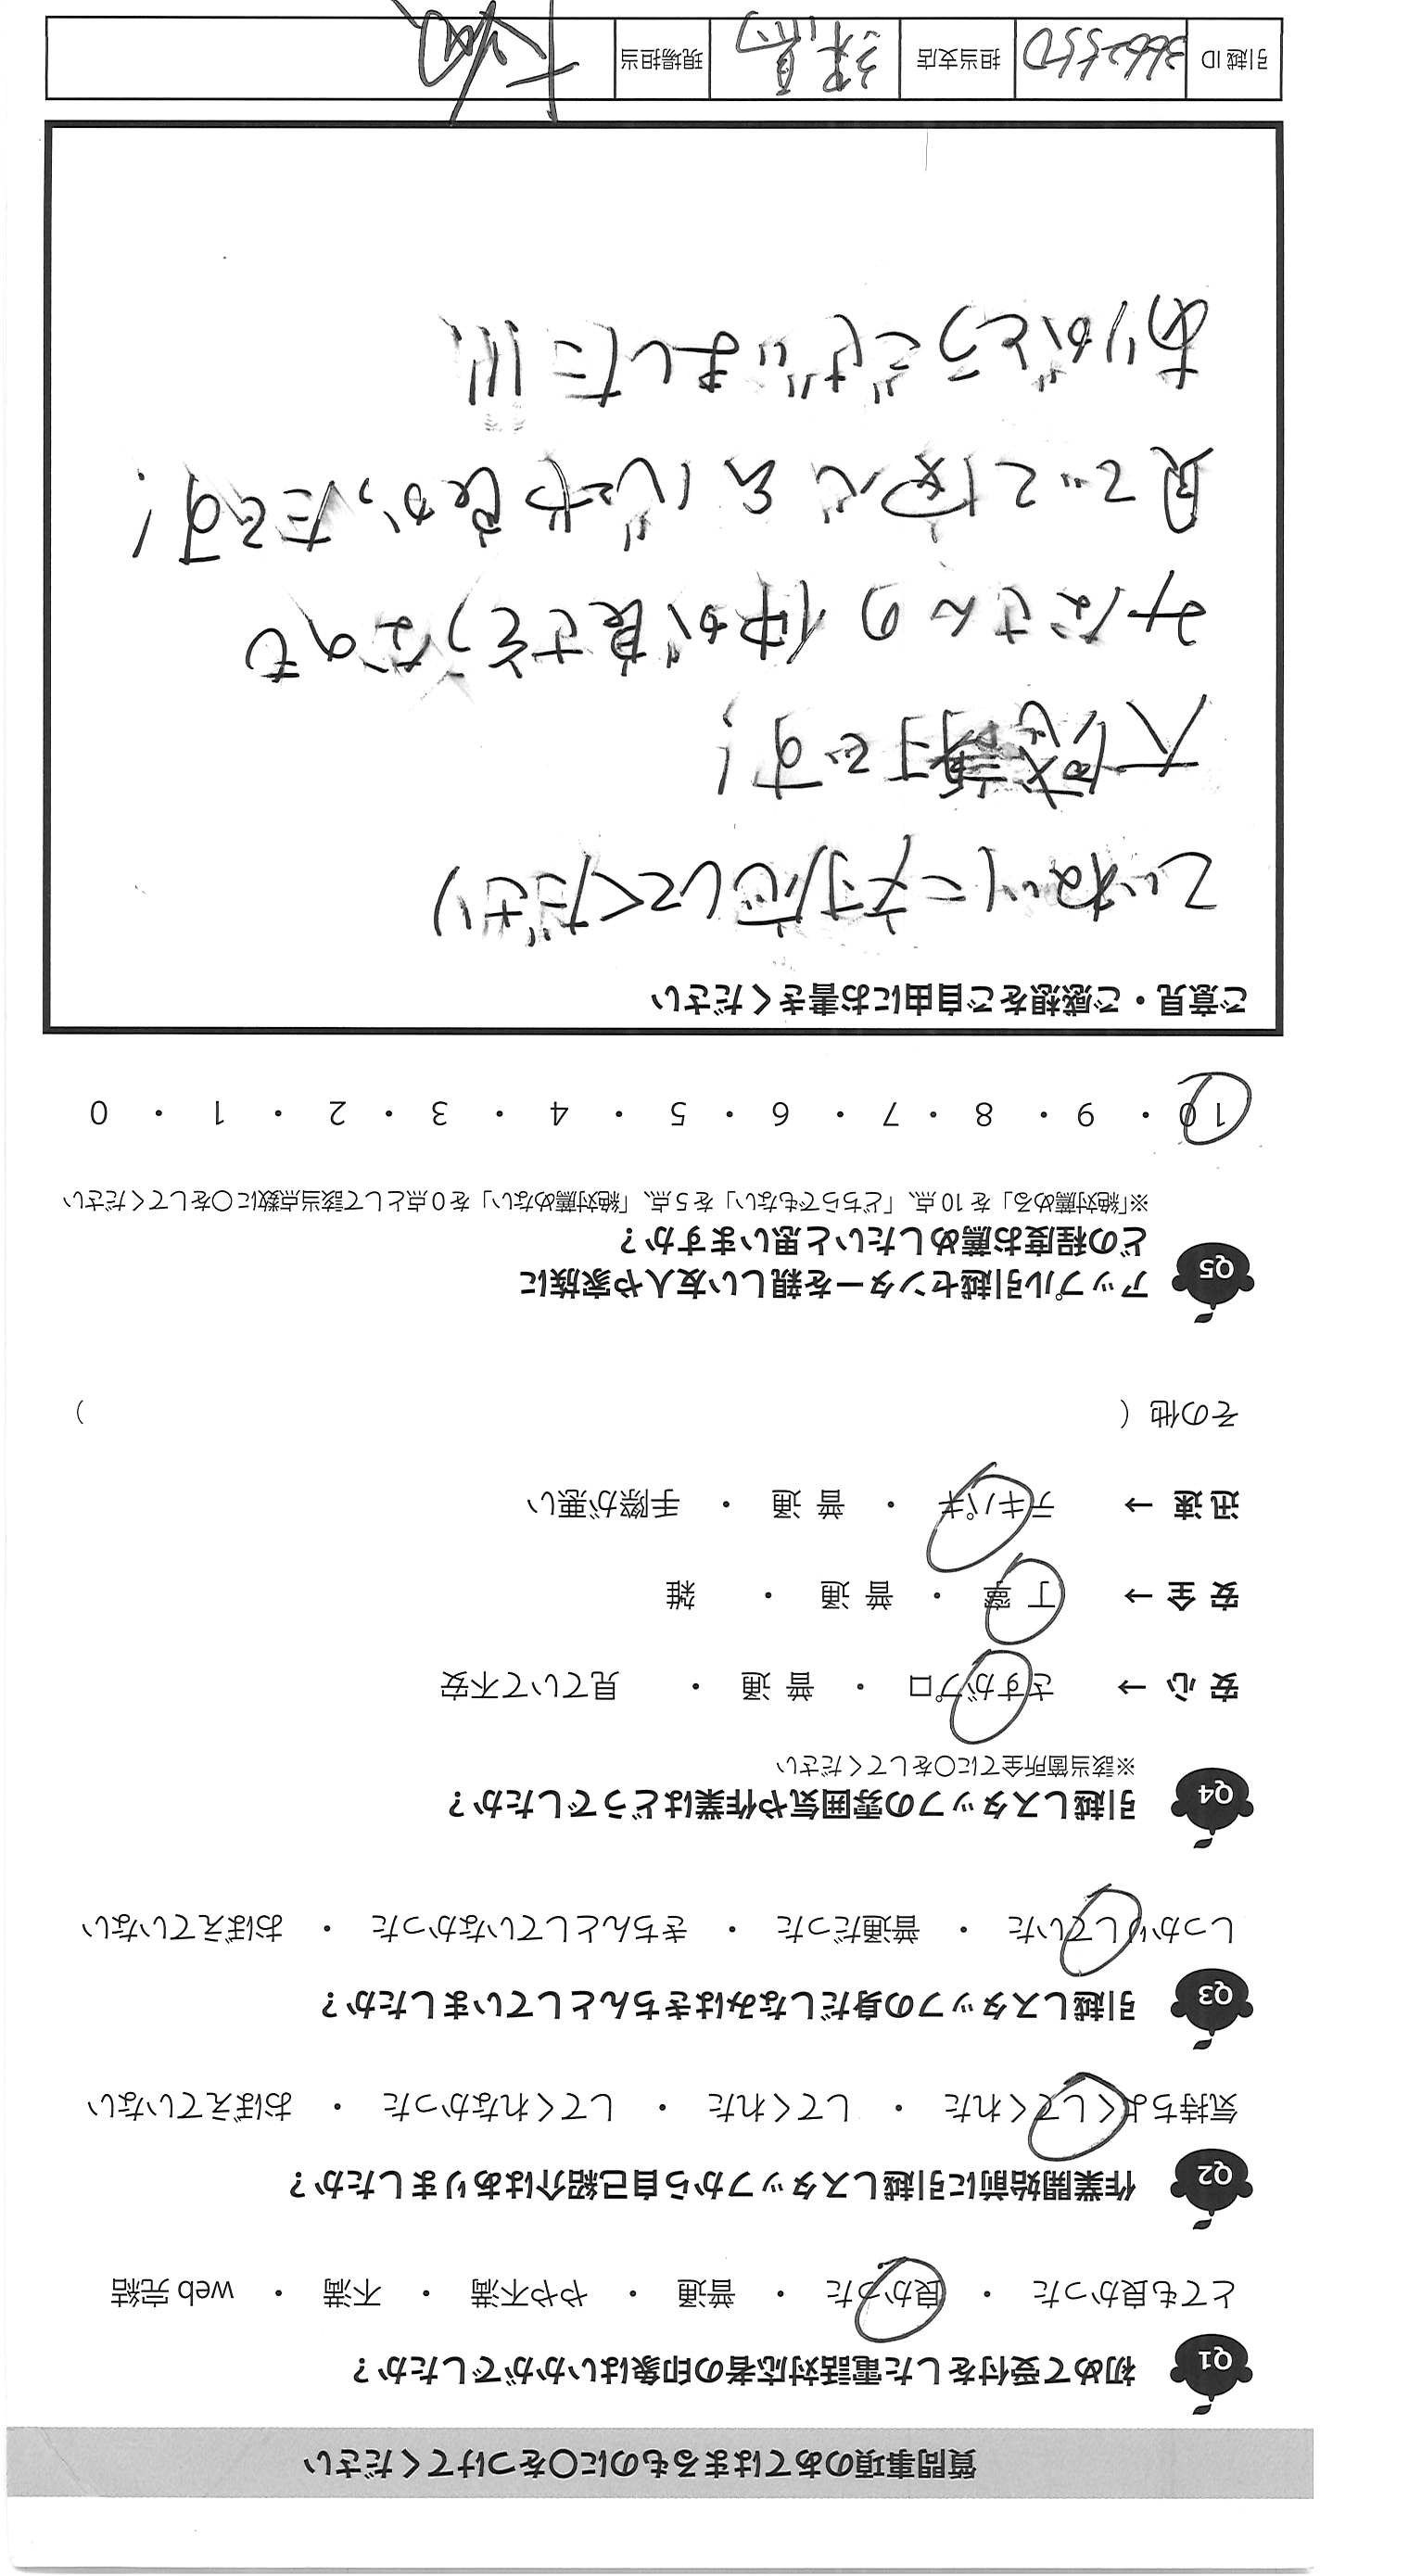 質問事項のあてはまるものに○をつけてください
Q1 初めて受付をした電話対応者の印象はいかがでしたか？
とても良かった ・ 良かった ・ 普通 ・ やや不満 ・ 不満 ・ web 完結
Q2 作業開始前に引越しスタッフから自己紹介はありましたか？
気持ちよくしてくれた ・ してくれた ・ してくれなかった ・ おぼえていない
Q3 引越しスタッフの身だしなみはきちんとしていましたか？
しっかりしていた ・ 普通だった ・ きちんとしていなかった ・ おぼえていない
Q4 引越しスタッフの雰囲気や作業はどうでしたか？
※該当箇所全てに○をしてください
安 心 → さすがプロ ・ 普 通 ・ 見ていて不安
安 全 → 丁 寧 ・ 普 通 ・ 雑
迅 速 → テキパキ ・ 普 通 ・ 手際が悪い
その他（ ）
Q5 アップル引越センターを親しい友人や家族に
どの程度お薦めしたいと思いますか？
※「絶対薦める」を 10 点、「どちらでもない」を 5 点、「絶対薦めない」を 0 点として該当点数に○をしてください
10 ・ 9 ・ 8 ・ 7 ・ 6 ・ 5 ・ 4 ・ 3 ・ 2 ・ 1 ・ 0
ご意見・ご感想をご自由にお書きください
ていねいに対応してくださり
大感謝です！
みなさんの仲が良さそうなのも
見てて安心
良かったです！
ありがとうございました!!!
引越 ID 担当支店 練馬 現場担当